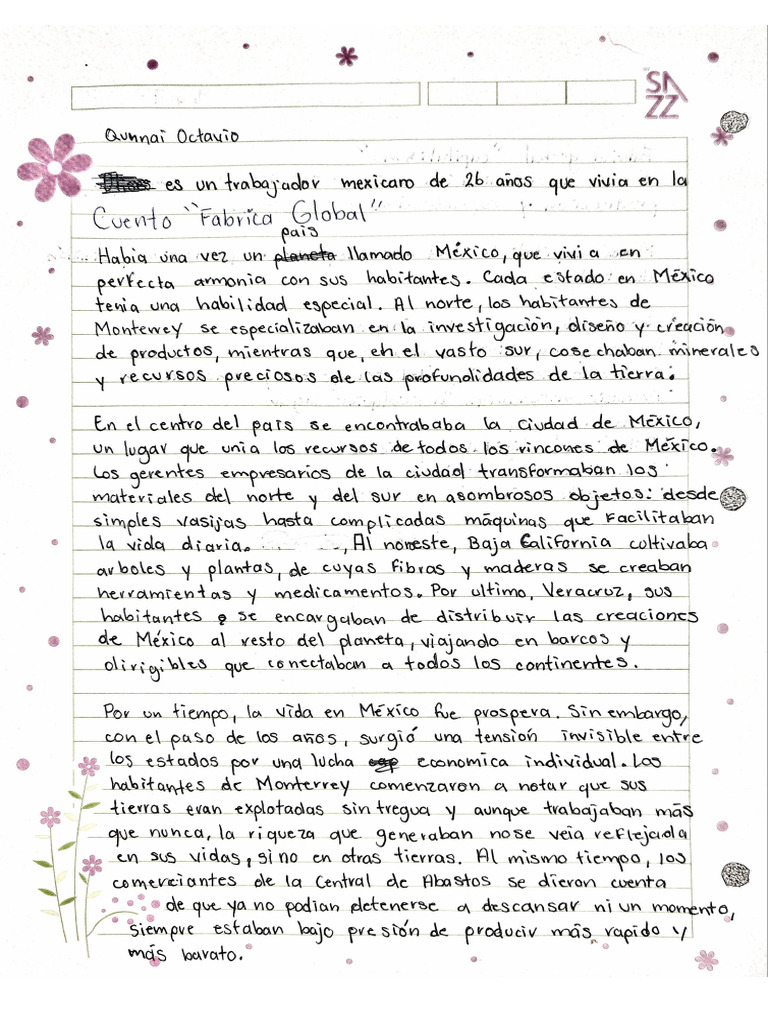 SAZZ
Qunnai Octavio
es un trabajador mexicano de 26 años que vivia en la
Cuento "Fabrica Global"
pais
Habia una vez un planeta llamado México, que vivia en
perfecta armonia con sus habitantes. Cada estado en México
tenia una habilidad especial. Al norte, los habitantes de
Monterrey se especializaban en la investigación, diseño y creación
de productos, mientras que, en el vasto sur, cosechaban minerales
y recursos preciosos de las profundidades de la tierra.
En el centro del pais se encontrababa la ciudad de México,
un lugar que unia los recursos de todos los rincones de México.
Los gerentes empresarios de la ciudad transformaban los
materiales del norte y del sur en asombrosos objetos: desde
simples vasijas hasta complicadas máquinas que facilitaban
la vida diaria. , Al noreste, Baja California cultivaba
arboles y plantas, de cuyas fibras y maderas se creaban
herramientas y medicamentos. Por ultimo, Veracruz, sus
habitantes se encargaban de distribuir las creaciones
de México al resto del planeta, viajando en barcos y
dirigibles que conectaban a todos los continentes.
Por un tiempo, la vida en México fue prospera. Sin embargo,
con el paso de los años, surgió una tensión invisible entre
los estados por una lucha economica individual. Los
habitantes de Monterrey comenzaron a notar que sus
tierras eran explotadas sin tregua y aunque trabajaban más
que nunca, la riqueza que generaban no se veia reflejada
en sus vidas, si no en otras tierras. Al mismo tiempo, los
comerciantes de la Central de Abastos se dieron cuenta
de que ya no podian detenerse a descansar ni un momento,
siempre estaban bajo presión de producir más rapido y
más barato.